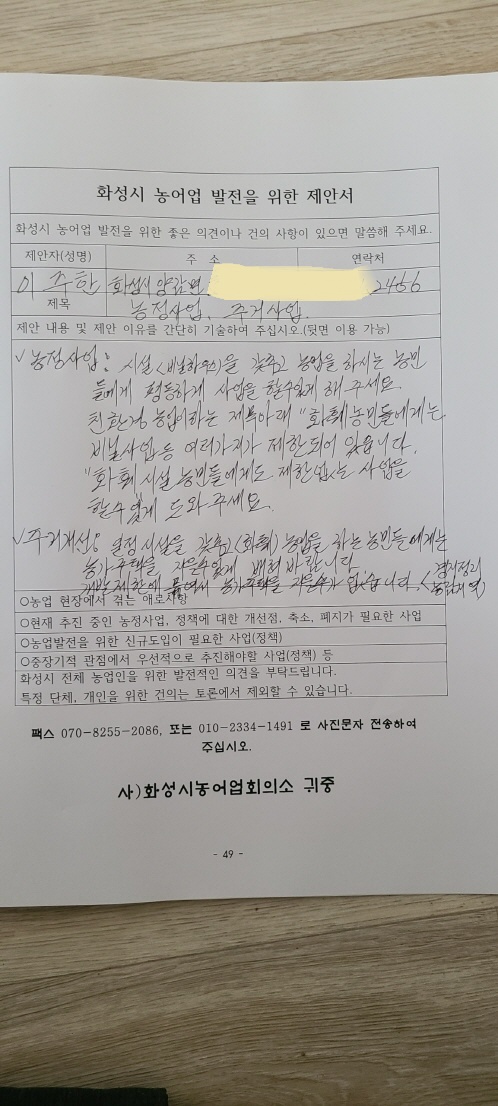 화성시 농어업 발전을 위한 제안서
화성시 농어업 발전을 위한 좋은 의견이나 건의 사항이 있으면 말씀해 주세요.
제안자(성명) 주 소 연락처
이 주한 화성시 양감면 2466
제목 농정사업, 주거사업.
제안 내용 및 제안 이유를 간단히 기술하여 주십시오.(뒷면 이용 가능)
√ 농정사업: 시설<비닐하우스>을 갖추고 농업을 하시는 농민
들에게 평등하게 사업을 할수있게 해 주세요.
친환경 농업이하는 제목아래 "화훼농민들에게는
비닐사업 등 여러가지가 제한되어 있읍니다.
"화훼시설 농민들에게도 제한없는 사업을
할수있게 도와 주세요.
√주거개선: 일정시설을 갖추고(화훼) 농업을 하는 농민들에게는
농가주택을 지을수있게 배려 바랍니다
개발제한에 농가주택을 지을수가 없습니다. <경지정리
○농업 현장에서 겪는 애로사항
○현재 추진 중인 농정사업, 정책에 대한 개선점, 축소, 폐지가 필요한 사업
○농업발전을 위한 신규도입이 필요한 사업(정책)
○중장기적 관점에서 우선적으로 추진해야할 사업(정책) 등
화성시 전체 농업인을 위한 발전적인 의견을 부탁드립니다.
특정 단체, 개인을 위한 건의는 토론에서 제외할 수 있습니다.
팩스 070-8255-2086, 또는 010-2334-1491 로 사진문자 전송하여
주십시오.
사)화성시농어업회의소 귀중
- 49 -